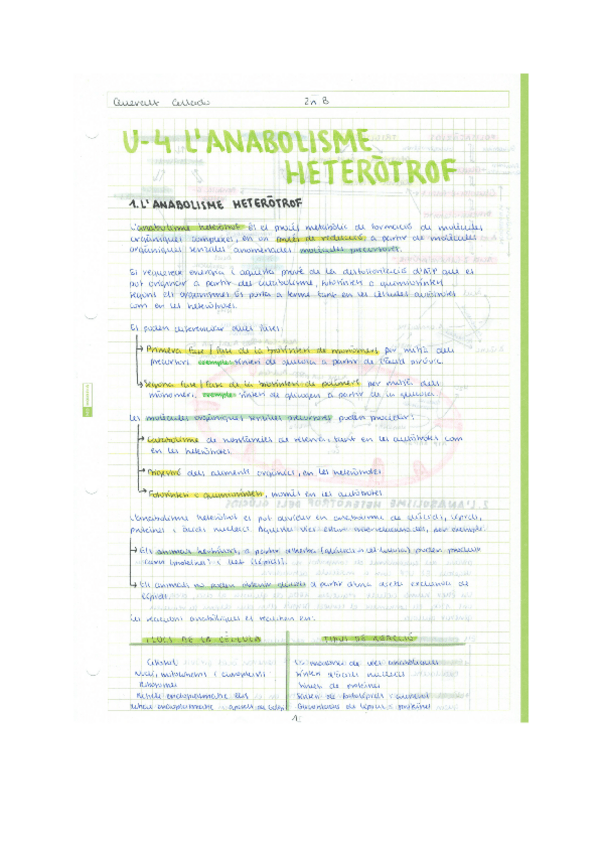 2n B
U-4 L'ANABOLISME
HETERÒTROF
1. L'ANABOLISME HETERÒTROF
L'anabolisme heteròtrof és el procés metabòlic de formació de molècules
orgàniques complexes, en un procés de reducció a partir de molècules
orgàniques senzilles anomenades molècules precursores.
Es requereix energia i aquesta prové de la desfosforilació d'ATP que es
pot originar a partir del catabolisme, fotosíntesi o quimiosíntesi
segons els organismes. Es porta a terme tant en les cèl·lules autòtrofes
com en les heteròtrofes.
Es poden diferenciar dues fases:
Primera fase / fase de la biosíntesi de monòmers per mitjà dels
precursors. exemple: síntesi de glucosa a partir de l'àcid pirúvic.
Segona fase / Fase de la biosíntesi de polímers per mitjà dels
monòmers. exemple: síntesi de glucogen a partir de la glucosa.
Les molècules orgàniques senzilles precursores poden procedir:
Catabolisme de substàncies de reserva, tant en les autòtrofes com
en les heteròtrofes.
Digestió dels aliments orgànics, en les heteròtrofes
Fotosíntesi o quimiosíntesi, només en les autòtrofes
L'anabolisme heteròtrof es pot dividir en anabolisme de glúcids, lípids,
proteïnes i àcids nucleics. Aquestes vies estan interrelacionades, per exemple:
Els animals herbívors, a partir d'herba poden produir
carn (proteïnes) i llet (lípids).
Els animals no poden obtenir glúcids a partir d'una dieta exclusiva de
lípids.
Les reaccions anabòliques es realitzen en:
LLOCS DE LA CÈL·LULA TIPUS DE REACCIÓ
Citosol La majoria de vies anabòliques
Nucli, mitocondris i cloroplasts Síntesi d'àcids nucleics
Ribosomes Síntesi de proteïnes
Reticle endoplasmàtic llis Síntesi de fosfolípids i colesterol
Reticle endoplasmàtic i aparell de Golgi Glucosilació de lípids i proteïnes
1